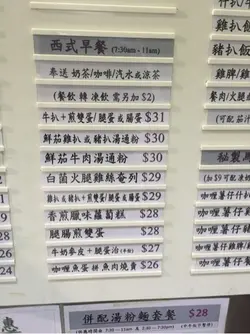 西式早餐 (7:30am - 11am)
奉送 奶茶/咖啡/汽水或涼茶
(餐飲 轉 凍飲 需另加 $2)
牛扒 + 煎雙蛋/腿蛋或腸蛋 $31
鮮茄雞扒或豬扒湯通粉 $30
鮮茄牛肉湯通粉 $30
白菌火腿雞絲奄列 $29
雞扒或腸仔 + 煎雙蛋/腿蛋 $29
香煎臘味蘿蔔糕 $28
腿腸煎雙蛋 $28
牛奶麥皮 + 腿蛋治 $27
咖喱魚蛋拼魚肉燒賣 $26
併配湯粉麵套餐 $28
雞飯
豬扒飯
秘製
咖喱薯仔
咖喱薯仔
咖喱薯仔
咖喱薯仔
惠
24